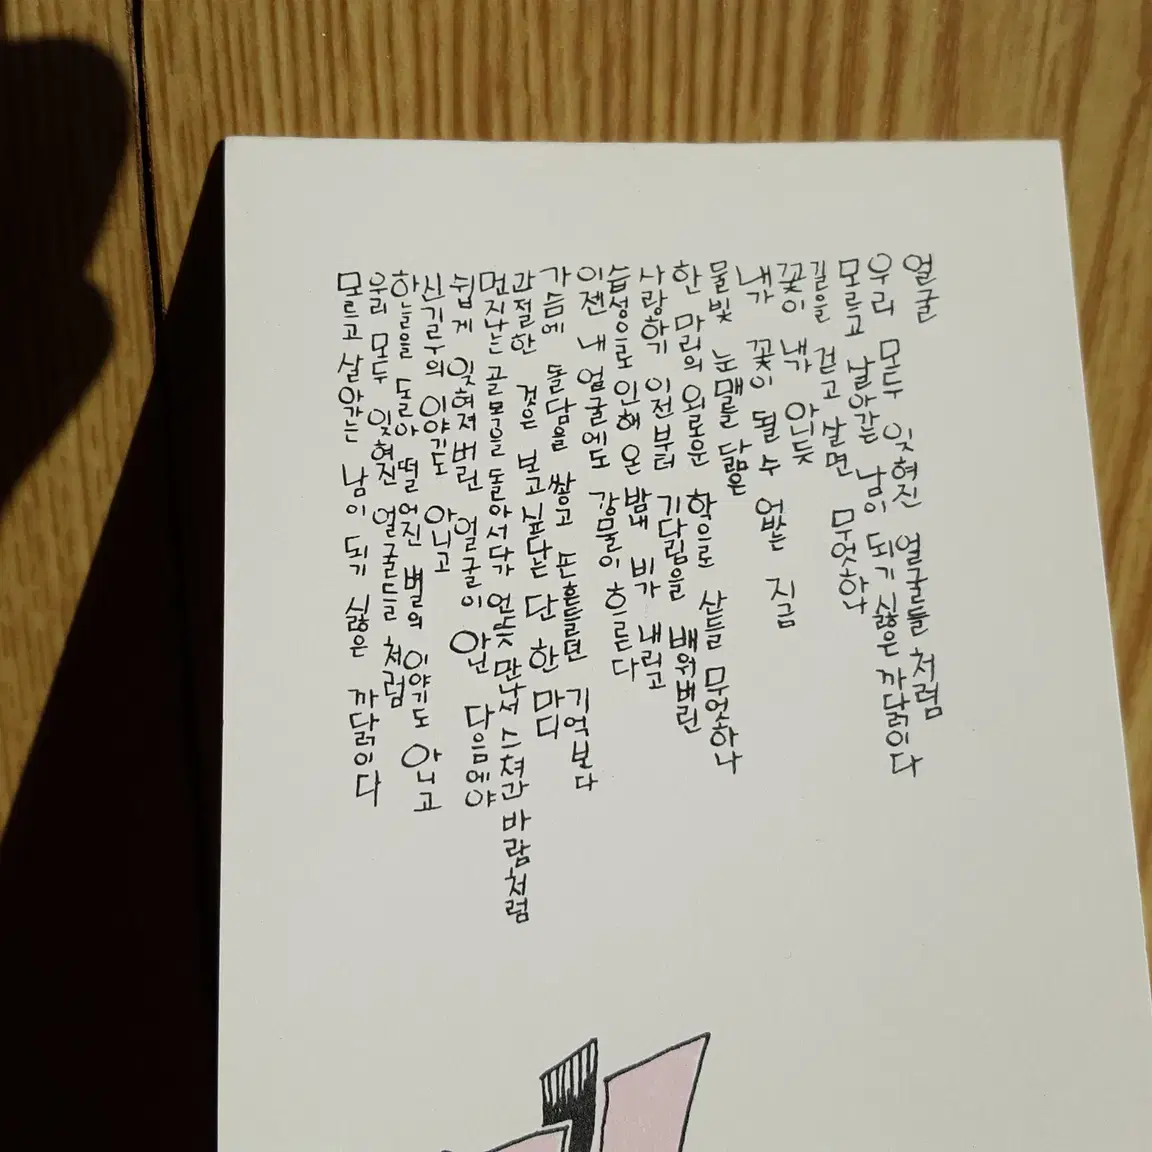 얼굴
우리 모두 잊혀진 얼굴들처럼
모르고 살아가는 남이 되기 싫은 까닭이다
길을 걷고 살면 무엇하나
꽃이 내가 아니듯
내가 꽃이 될 수 없는 지금
물빛 눈매를 닮은
한 마리의 외로운 학으로 산들 무엇하나
사랑하기 이전부터 기다림을 배워버린
습성으로 인해 온 밤내 비가 내리고
이젠 내 얼굴에도 강물이 흐른다
가슴에 돌담을 쌓고 손 흔들던 기억보다
간절한 것은 보고 싶다는 단 한 마디
먼지나는 골목을 돌아서다가 언뜻 만나서 스쳐간 바람처럼
쉽게 잊혀져버린 얼굴이 아닌 다음에야
신기루의 이야기도 아니고
하늘을 돌아 떨어진 별의 이야기도 아니고
우리 모두 잊혀진 얼굴들처럼
모르고 살아가는 남이 되기 싫은 까닭이다